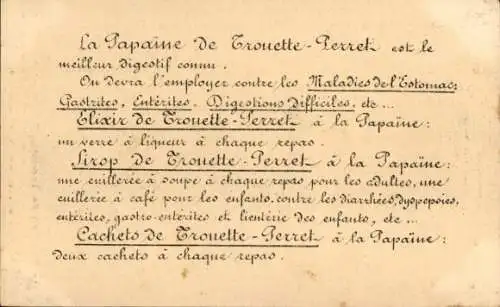 La Papaïne de Trouette-Perret est le
meilleur digestif connu.
On devra l'employer contre les Maladies de l'Estomac:
Gastrites, Entérites, Digestions Difficiles, etc...
Elixir de Trouette-Perret à la Papaïne:
un verre à liqueur à chaque repas.
Sirop de Trouette-Perret à la Papaïne:
une cuillerée à soupe à chaque repas pour les adultes, une
cuillerée à café pour les enfants, contre les diarrhées, dyspepsies,
entérites, gastro-entérites et lientérie des enfants, etc...
Cachets de Trouette-Perret à la Papaïne:
deux cachets à chaque repas.